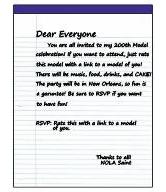 Dear Everyone
You are all invited to my 200th Model
celebration! If you want to attend, just rate
this model with a link to a model of you!
There will be music, food, drinks, and CAKE!
The party will be in New Orleans, so fun is
a garuntee! Be sure to RSVP if you want
to have fun!
RSVP: Rate this with a link to a model
of you.
Thanks to all!
NOLA Saint